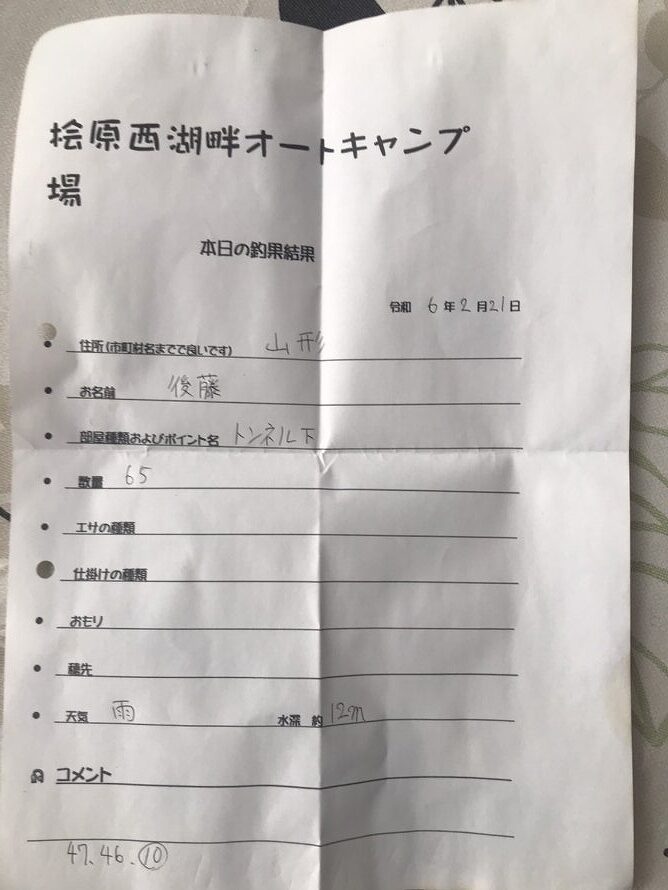 桧原西湖畔オートキャンプ
場
本日の釣果結果
令和 6年2月21日
• 住所(市町村名までで良いです) 山形
• お名前 後藤
• 部屋種類およびポイント名 トンネル下
• 数量 65
• エサの種類
• 仕掛けの種類
• おもり
• 穂先
• 天気 雨 水深 約12m
コメント
47.46.⑩